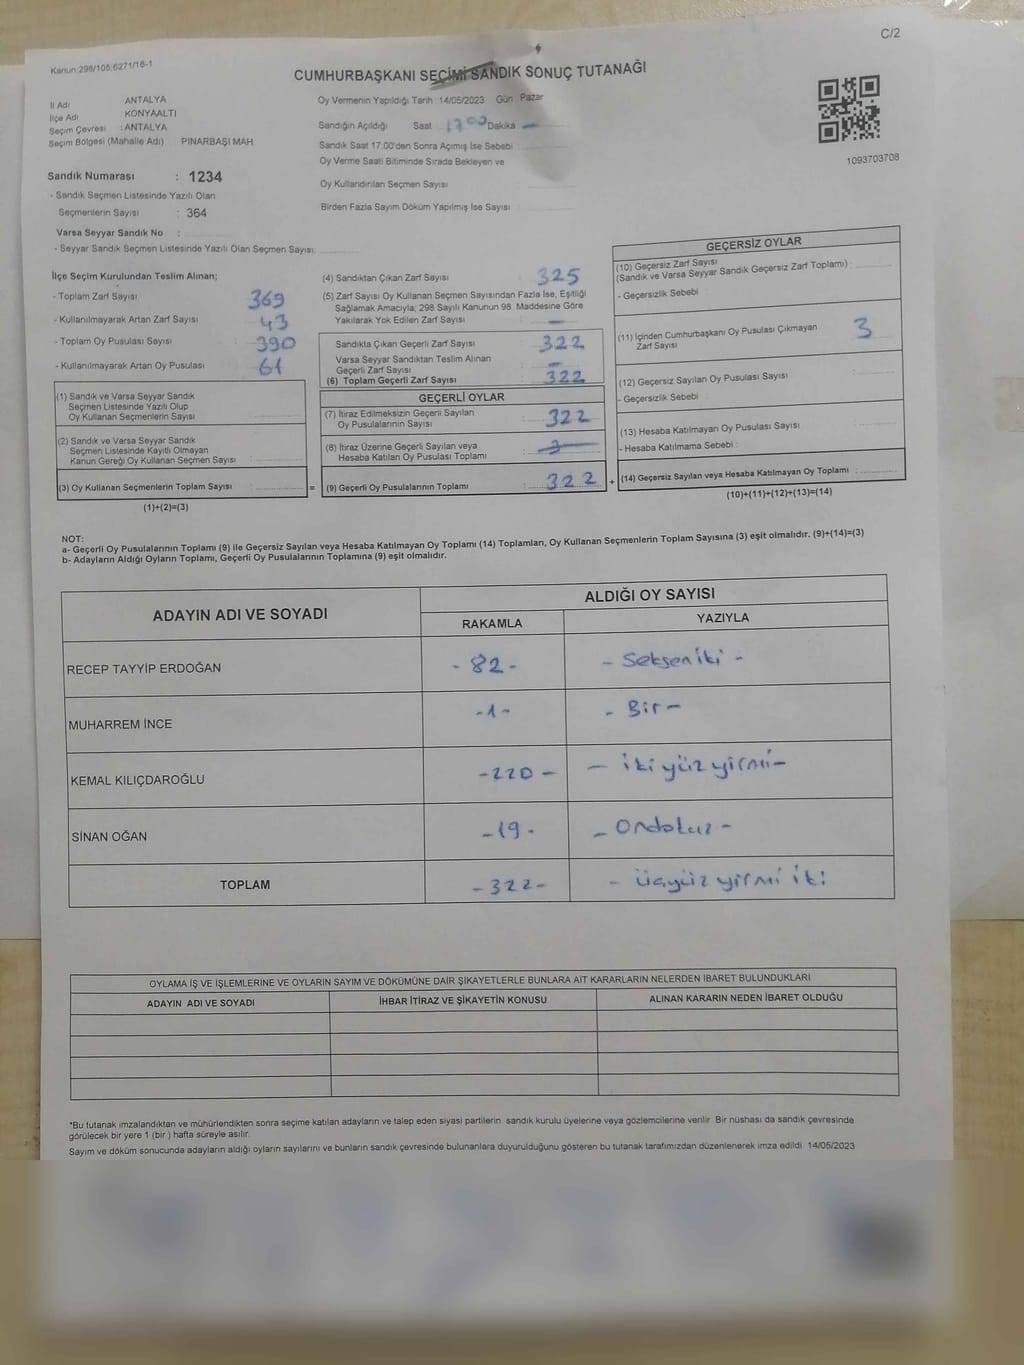 C/2
Kanun:298/105;6271/18-1
CUMHURBAŞKANI SEÇİMİ SANDIK SONUÇ TUTANAĞI
İl Adı ANTALYA
İlçe Adı KONYAALTI
Seçim Çevresi : ANTALYA
Seçim Bölgesi (Mahalle Adı) PINARBAŞI MAH.
Sandık Numarası : 1234
- Sandık Seçmen Listesinde Yazılı Olan
Seçmenlerin Sayısı : 364
Varsa Seyyar Sandık No :
- Seyyar Sandık Seçmen Listesinde Yazılı Olan Seçmen Sayısı:
Oy Vermenin Yapıldığı Tarih :14/05/2023 Gün : Pazar
Sandığın Açıldığı Saat 17.00 Dakika —
Sandık Saat 17:00'den Sonra Açımış İse Sebebi :
Oy Verme Saati Bitiminde Sırada Bekleyen ve
Oy Kullandırılan Seçmen Sayısı
Birden Fazla Sayım Döküm Yapılmış İse Sayısı :
1093703708
İlçe Seçim Kurulundan Teslim Alınan;
- Toplam Zarf Sayısı 369
- Kullanılmayarak Artan Zarf Sayısı 43
- Toplam Oy Pusulası Sayısı 390
- Kullanılmayarak Artan Oy Pusulası 61
(1) Sandık ve Varsa Seyyar Sandık
Seçmen Listesinde Yazılı Olup
Oy Kullanan Seçmenlerin Sayısı
(2) Sandık ve Varsa Seyyar Sandık
Seçmen Listesinde Kayıtlı Olmayan
Kanun Gereği Oy Kullanan Seçmen Sayısı :
(3) Oy Kullanan Seçmenlerin Toplam Sayısı :
(1)+(2)=(3)
=
(4) Sandıktan Çıkan Zarf Sayısı 325
(5) Zarf Sayısı Oy Kullanan Seçmen Sayısından Fazla İse, Eşitliği
Sağlamak Amacıyla; 298 Sayılı Kanunun 98. Maddesine Göre
Yakılarak Yok Edilen Zarf Sayısı —
Sandıkta Çıkan Geçerli Zarf Sayısı 322
Varsa Seyyar Sandıktan Teslim Alınan
Geçerli Zarf Sayısı —
(6) Toplam Geçerli Zarf Sayısı 322
GEÇERLİ OYLAR
(7) İtiraz Edilmeksizin Geçerli Sayılan
Oy Pusulalarının Sayısı 322
(8) İtiraz Üzerine Geçerli Sayılan veya
Hesaba Katılan Oy Pusulası Toplamı
(9) Geçerli Oy Pusulalarının Toplamı 322
+
GEÇERSİZ OYLAR
(10) Geçersiz Zarf Sayısı
(Sandık ve Varsa Seyyar Sandık Geçersiz Zarf Toplamı) :
- Geçersizlik Sebebi :
(11) İçinden Cumhurbaşkanı Oy Pusulası Çıkmayan
Zarf Sayısı 3
(12) Geçersiz Sayılan Oy Pusulası Sayısı :
- Geçersizlik Sebebi :
(13) Hesaba Katılmayan Oy Pusulası Sayısı :
- Hesaba Katılmama Sebebi :
(14) Geçersiz Sayılan veya Hesaba Katılmayan Oy Toplamı :
(10)+(11)+(12)+(13)=(14)
NOT:
a- Geçerli Oy Pusulalarının Toplamı (9) ile Geçersiz Sayılan veya Hesaba Katılmayan Oy Toplamı (14) Toplamları, Oy Kullanan Seçmenlerin Toplam Sayısına (3) eşit olmalıdır. (9)+(14)=(3)
b- Adayların Aldığı Oyların Toplamı, Geçerli Oy Pusulalarının Toplamına (9) eşit olmalıdır.
ADAYIN ADI VE SOYADI ALDIĞI OY SAYISI
RAKAMLA YAZIYLA
RECEP TAYYİP ERDOĞAN -82- - Sekseniki -
MUHARREM İNCE -1- - Bir -
KEMAL KILIÇDAROĞLU -220- - ikiyüz yirmi -
SİNAN OĞAN -19- - Ondokuz -
TOPLAM -322- - Üçyüz yirmi iki
OYLAMA İŞ VE İŞLEMLERİNE VE OYLARIN SAYIM VE DÖKÜMÜNE DAİR ŞİKAYETLERLE BUNLARA AİT KARARLARIN NELERDEN İBARET BULUNDUKLARI
ADAYIN ADI VE SOYADI İHBAR İTİRAZ VE ŞİKAYETİN KONUSU ALINAN KARARIN NEDEN İBARET OLDUĞU
*Bu tutanak imzalandıktan ve mühürlendikten sonra seçime katılan adayların ve talep eden siyasi partilerin sandık kurulu üyelerine veya gözlemcilerine verilir. Bir nüshası da sandık çevresinde
görülecek bir yere 1 (bir ) hafta süreyle asılır.
Sayım ve döküm sonucunda adayların aldığı oyların sayılarını ve bunların sandık çevresinde bulunanlara duyurulduğunu gösteren bu tutanak tarafımızdan düzenlenerek imza edildi. 14/05/2023